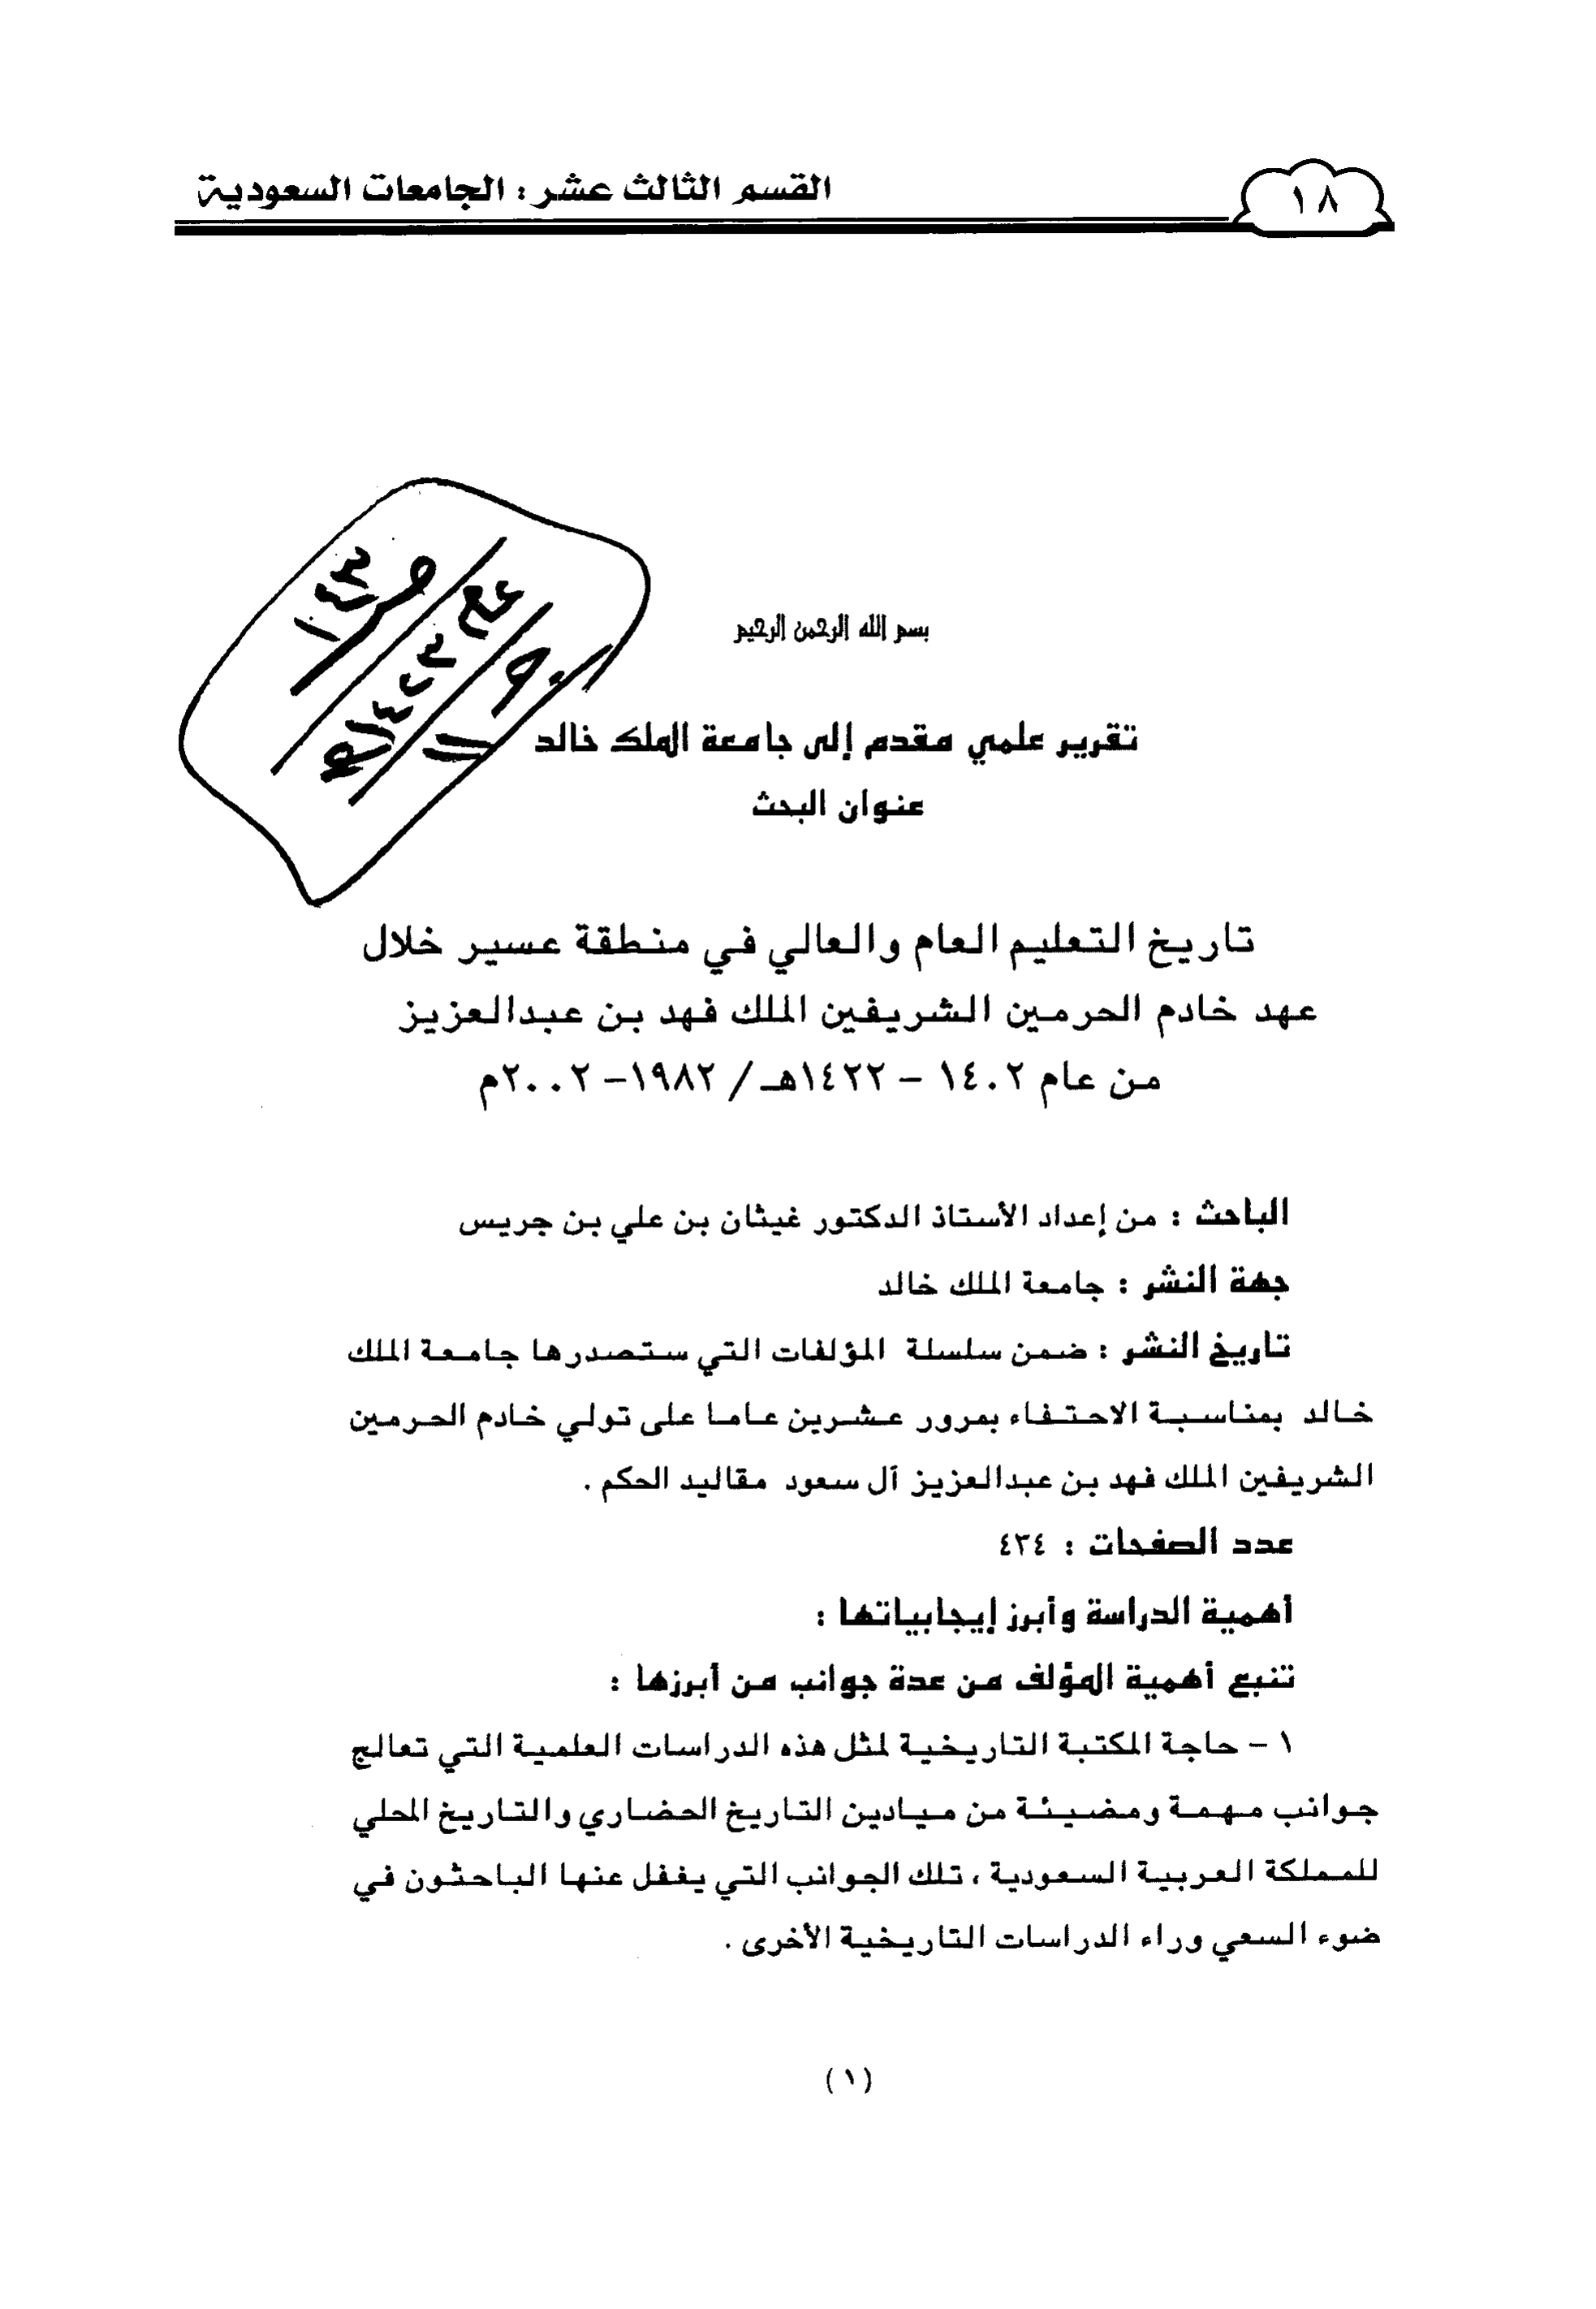 ١٨
القسم الثالث عشر : الجامعات السعودية
بسم الله الرحمن الرحيم
تقرير علمي مقدم إلى جامعة الملك خالد
عنوان البحث
تاريخ التعليم العام والعالي في منطقة عسير خلال
عهد خادم الحرمين الشريفين الملك فهد بن عبدالعزيز
من عام ١٤٠٢ – ١٤٢٢هـ / ١٩٨٢– ٢٠٠٢م
الباحث : من إعداد الأستاذ الدكتور غيثان بن علي بن جريس
جهة النشر : جامعة الملك خالد
تاريخ النشر : ضمن سلسلة المؤلفات التي ستصدرها جامعة الملك
خالد بمناسبة الاحتفاء بمرور عشرين عاما على تولي خادم الحرمين
الشريفين الملك فهد بن عبدالعزيز آل سعود مقاليد الحكم .
عدد الصفحات : ٤٣٤
أهمية الدراسة وأبرز إيجابياتها :
تنبع أهمية المؤلف من عدة جوانب من أبرزها :
١ – حاجة المكتبة التاريخية لمثل هذه الدراسات العلمية التي تعالج
جوانب مهمة ومضيئة من ميادين التاريخ الحضاري والتاريخ المحلي
للمملكة العربية السعودية ، تلك الجوانب التي يغفل عنها الباحثون في
ضوء السعي وراء الدراسات التاريخية الأخرى .
(١)